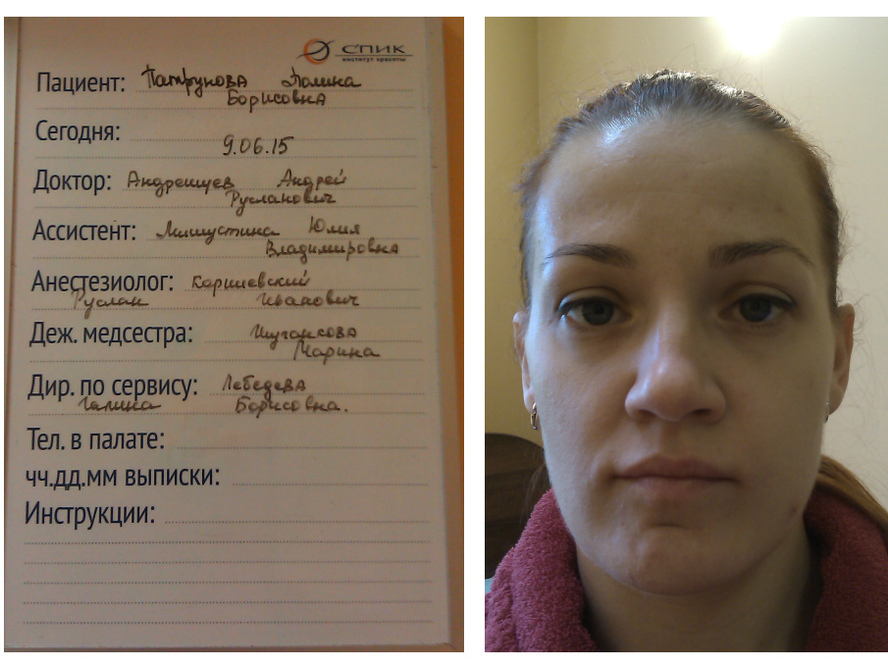 СПИК
институт красоты
Пациент: Патрунова Полина
Борисовна
Сегодня:
9.06.15
Доктор: Андреищев Андрей
Русланович
Ассистент: Мишустина Юлия
Владимировна
Анестезиолог: Коришевский
Руслан Иванович
Деж. медсестра:
Марина
Дир. по сервису: Лебедева
Галина Борисовна.
Тел. в палате:
чч.дд.мм выписки:
Инструкции: